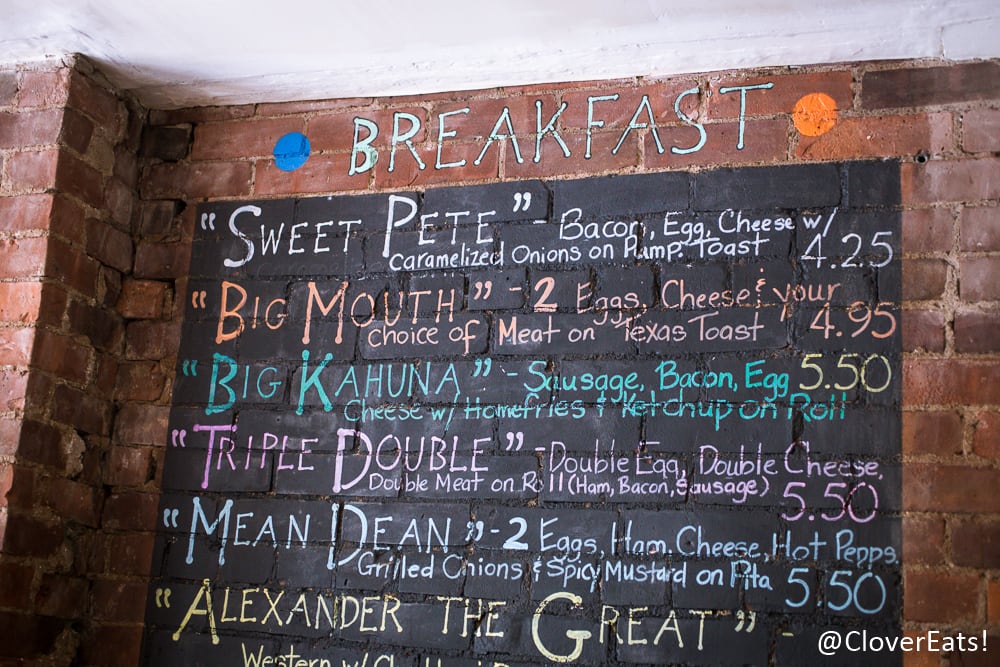 BREAKFAST
"SWEET PETE" - Bacon, Egg, Cheese w/
Caramelized Onions on Pump. Toast 4.25
"BIG MOUTH" - 2 Eggs, Cheese & your
choice of Meat on Texas Toast 4.95
"BIG KAHUNA" - Sausage, Bacon, Egg 5.50
Cheese w/ Homefries & Ketchup on Roll
"TRIPLE DOUBLE" - Double Egg, Double Cheese,
Double Meat on Roll (Ham, Bacon, Sausage) 5.50
"MEAN DEAN" - 2 Eggs, Ham, Cheese, Hot Pepps,
Grilled Onions & Spicy Mustard on Pita 5.50
"ALEXANDER THE GREAT" -
Western w/
@CloverEats!